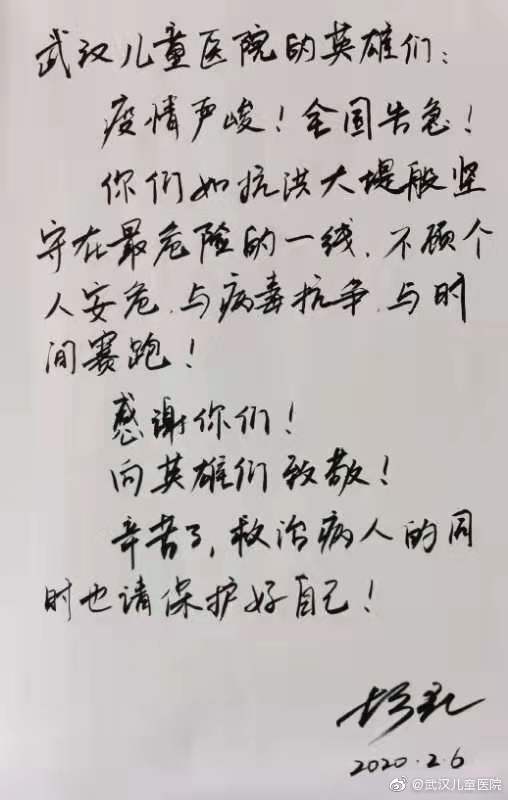 武汉儿童医院的英雄们：
疫情严峻！全国告急！
你们如抗洪大堤般坚
守在最危险的一线，不顾个
人安危，与病毒抗争，与时
间赛跑！
感谢你们！
向英雄们致敬！
辛苦了，救治病人的同
时也请保护好自己！
2020.2.6
@武汉儿童医院